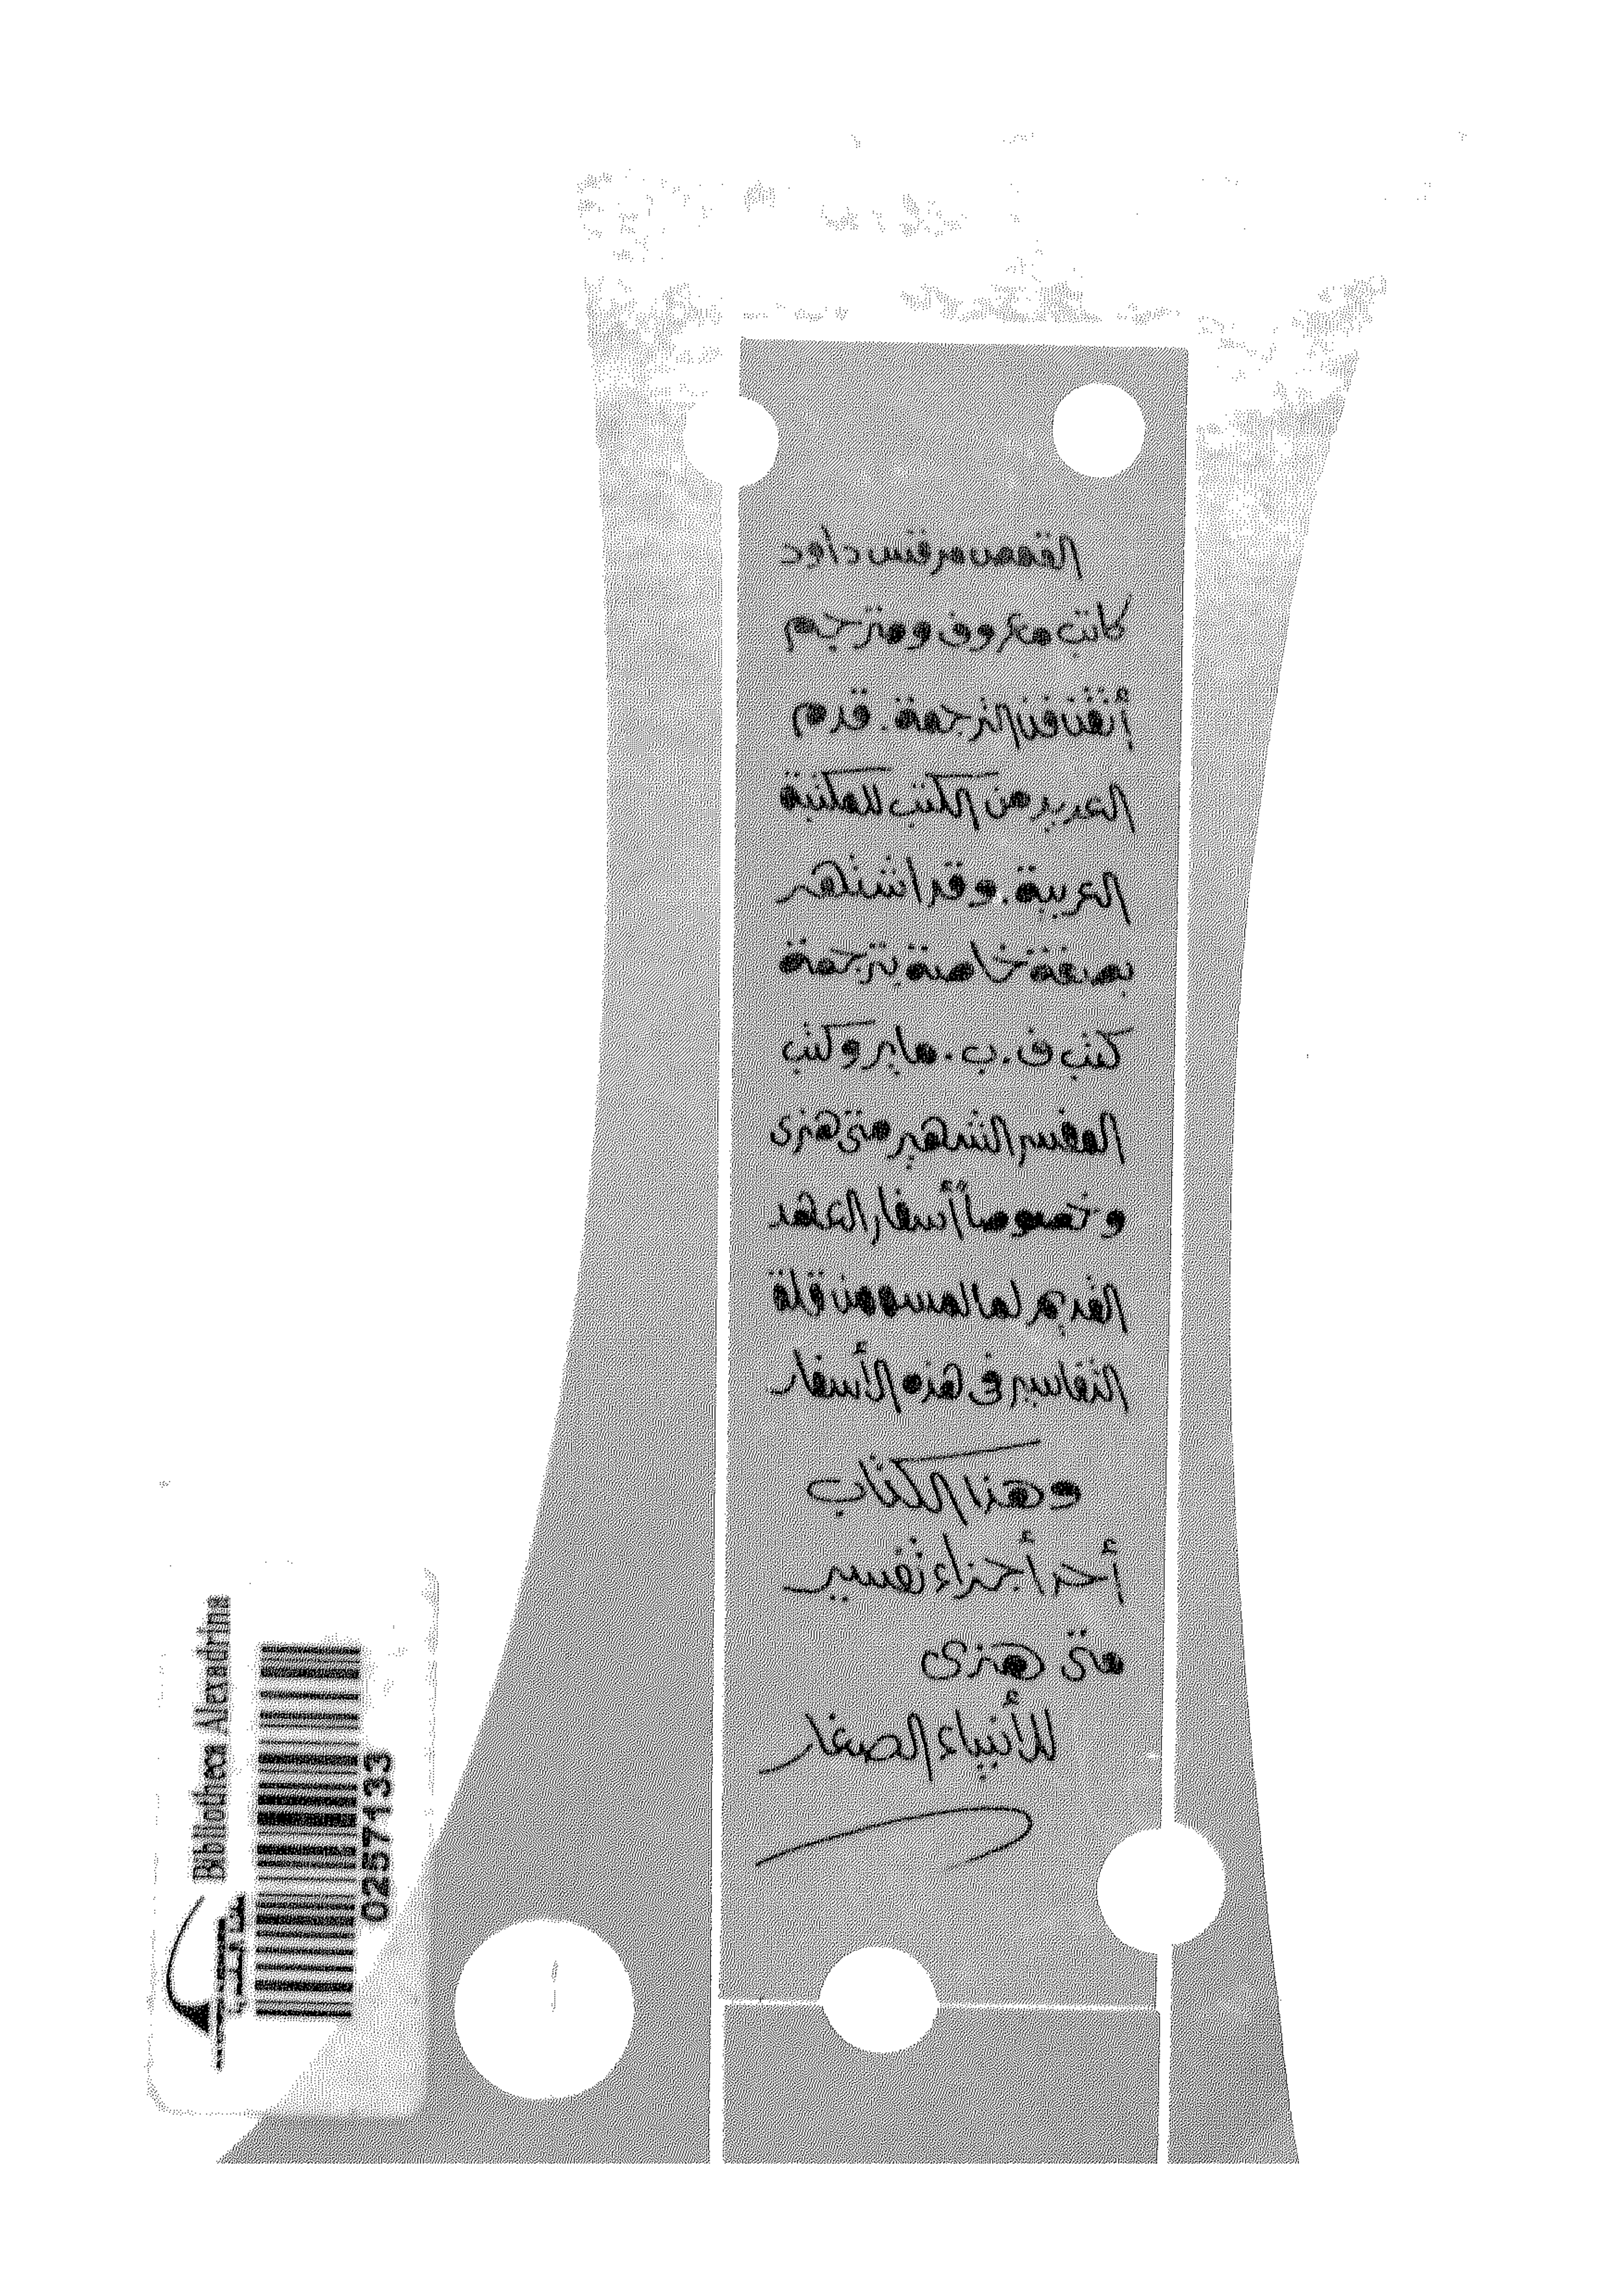 القمص مرقس داود
كاتب معروف ومترجم
أتقن فن الترجمة. قدم
العديد من الكتب للمكتبة
العربية. وقد اشتهر
بصفة خاصة بترجمة
كتب ف. ب. ماير وكتب
المفسر الشهير متى هنرى
وخصوصاً أسفار العهد
القديم لما لمسه من قلة
التفاسير فى هذه الأسفار
وهذا الكتاب
أحد أجزاء تفسير
متى هنرى
للأنبياء الصغار
Bibliotheca Alexandrina
0257133